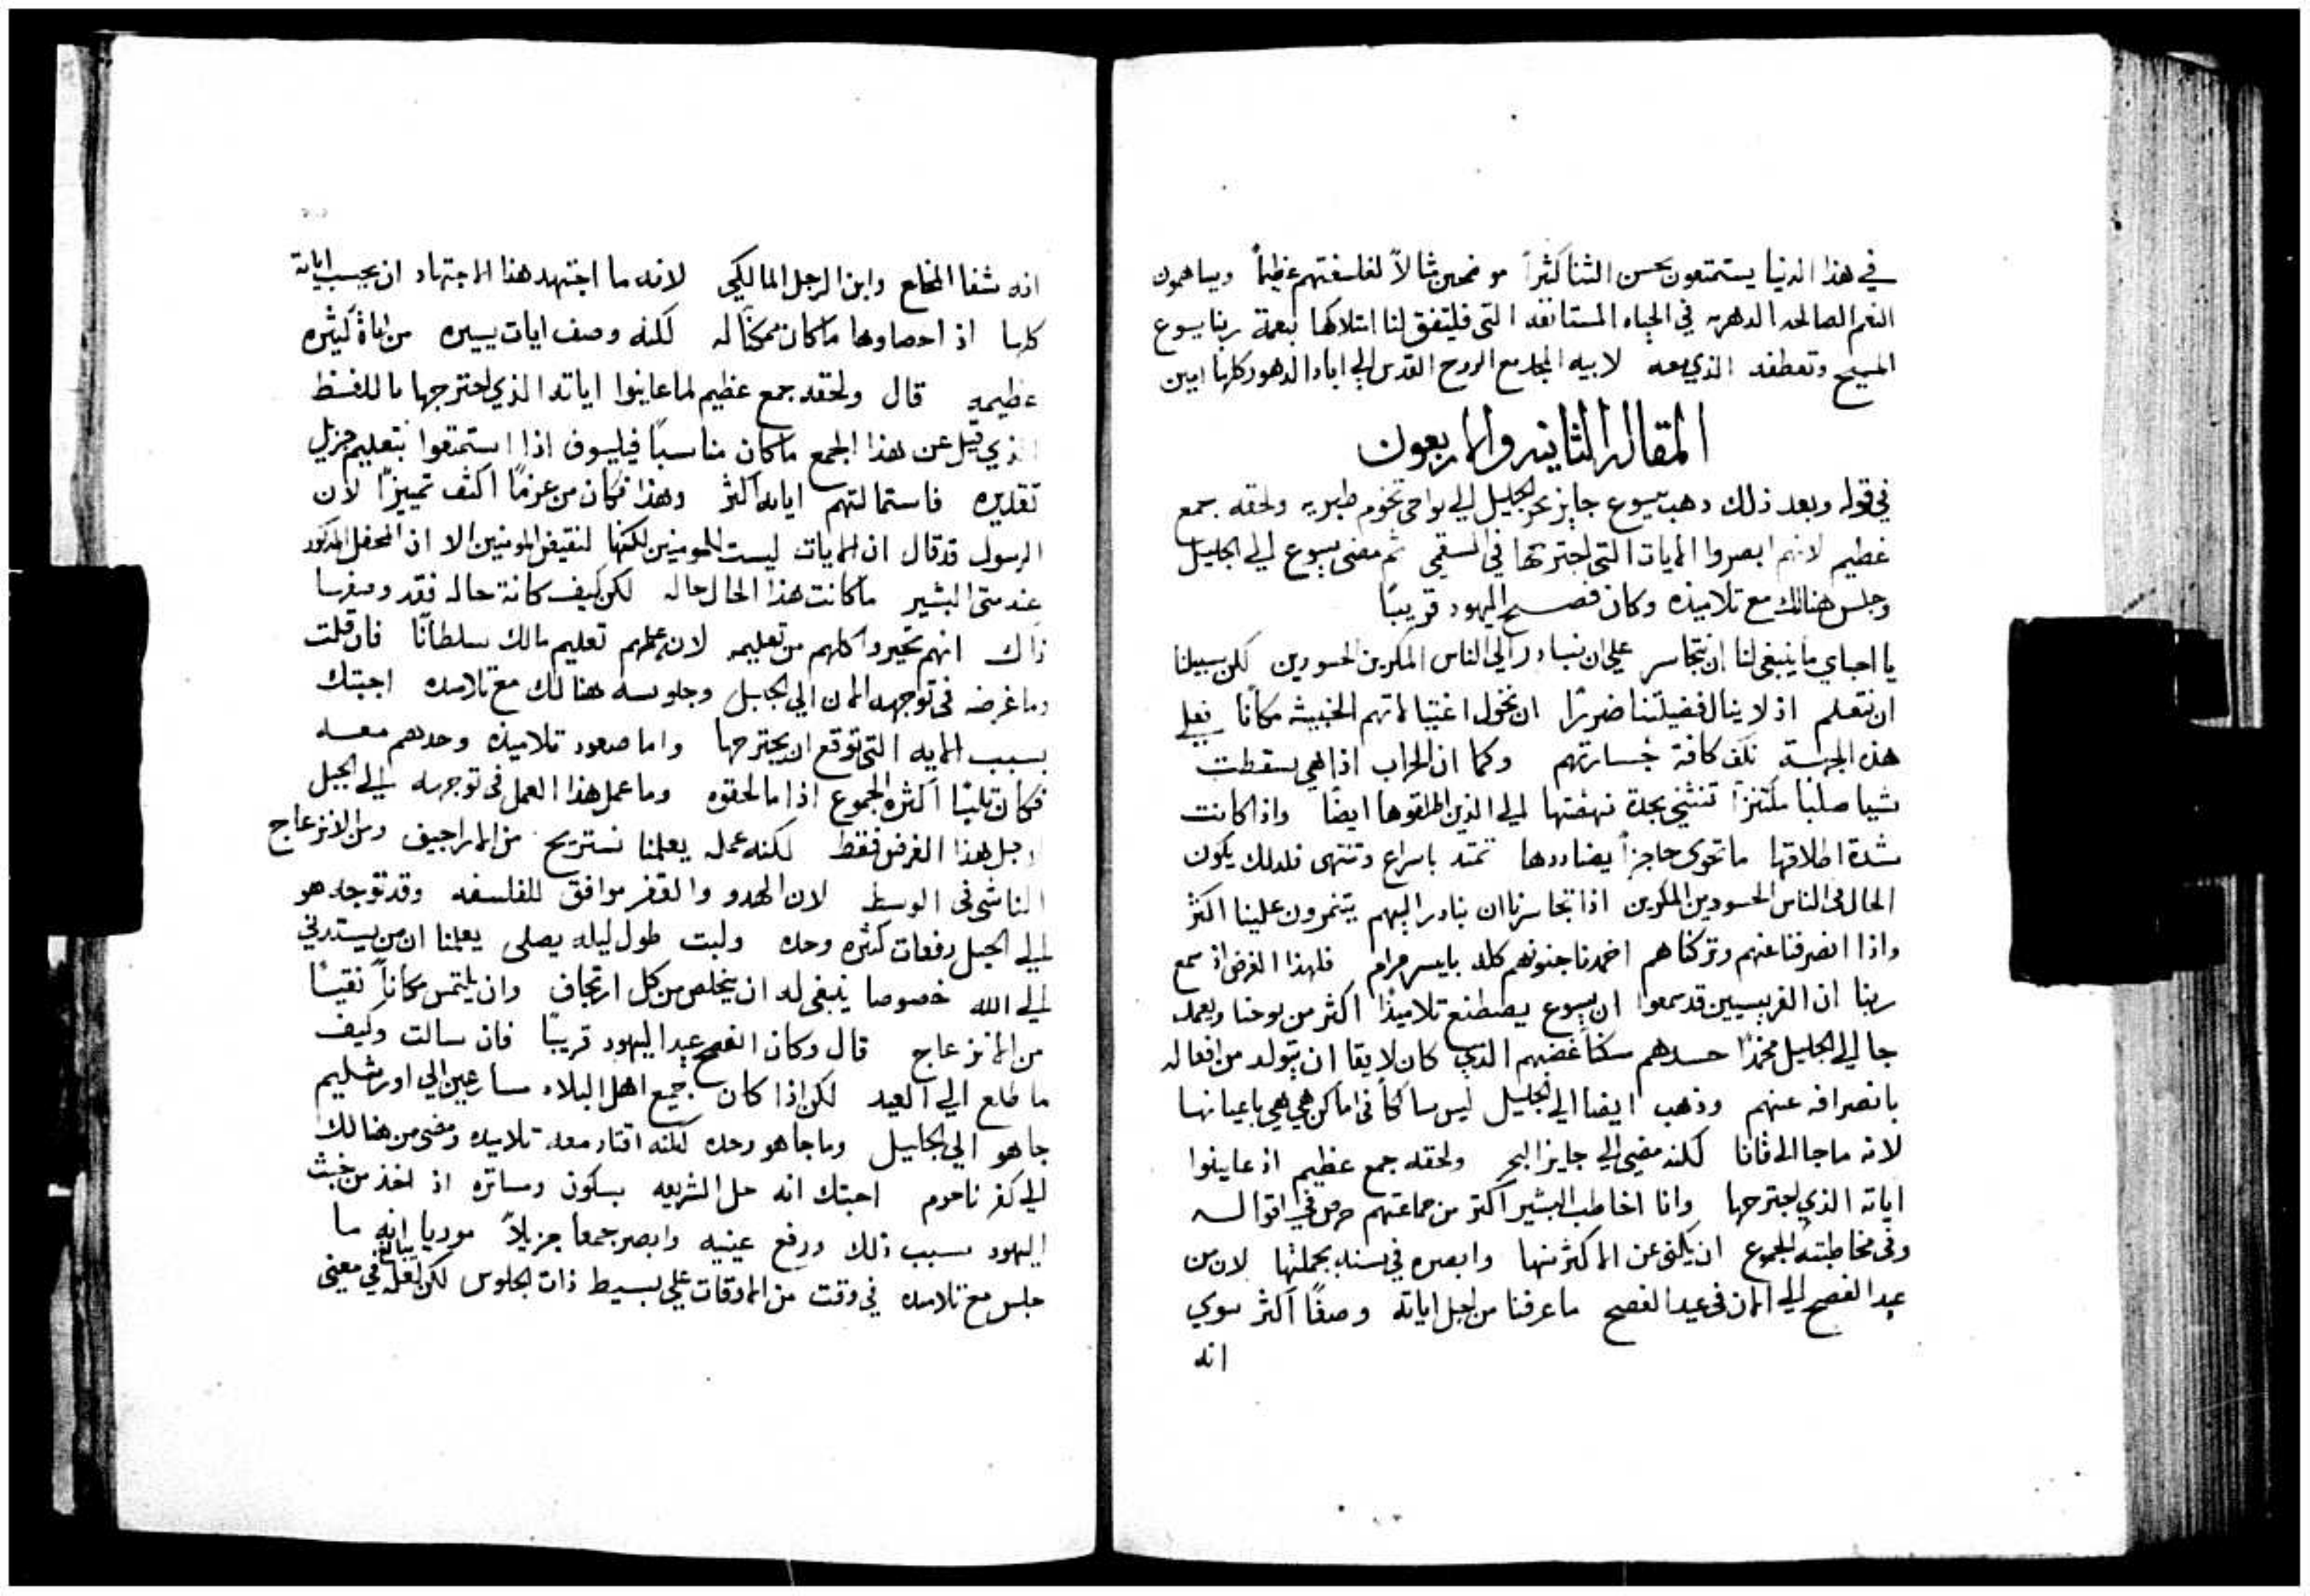 في هذا الدنيا يستمتعون بحسن الثنا كثراً موضحين مثالاً لفلسفتهم عظيماً ويساهمون
النعم الصالحه الدهريه في الحياه المستانفه التي فليتفق لنا امتلاكها بنعمة ربنا يسوع
المسيح وتعطفه الذي معه لابيه المجد مع الروح القدس الي اباد الدهور كلها امين
المقاله الثانيه والاربعون
في قوله وبعد ذلك دهب يسوع جايز بحر الجليل الي نواحي تخوم طبريه ولحقه جمع
عظيم لانهم ابصروا الايات التي اجترحها في السقمي ثم مضي يسوع الي الجليل
وجلس هنالك مع تلاميذه وكان فصح اليهود قريبًا
يا احباي ما ينبغي لنا ان نتجاسر علي ان نبادر الي الناس الماكرين الحسودين لكن سبيلنا
ان نتعلم اذ لا ينال فضيلتنا ضررًا ان نخول اغتيالاتهم الخبيثه مكانًا فعلي
هذه الجهة نكف كافة جسارتهم وكما ان الحراب اذا هي سقطت
شيا صلبا مكتنزاً تنثني بحدة نهضتها الي الذين اطلقوها ايضًا واذا كانت
شدة اطلاقها ما تحوي حاجزاً يضاددها تمتد باسراع وتنتهي فلدلك يكون
الحال في الناس الحسودين الماكرين اذا تجاسرنا ان نبادر اليهم يتنمرون علينا اكثر
واذا انصرفنا عنهم وتركناهم اخمدنا جنونهم كله بايسر مرام فلهذا الغرض اذ سمع
ربنا ان الفريسيين قد سمعوا ان يسوع يصطنع تلاميذًا اكثر من يوحنا ويعمد
جا الي الجليل مخمدًا حسدهم مسكناً غضبهم الذي كان لايقا ان يتولد من افعاله
بانصرافه عنهم وذهب ايضا الي الجليل ليس ساكناً في اماكن هي هي باعيانها
لانه ما جا الي قانا لكنه مضي الي جايز البحر ولحقه جمع عظيم اذ عاينوا
اياته الذي اجترحها وانا اخاطب البشير اكثر من جماعتهم حرص في اقواله
وفي مخاطبته للجموع ان يكني عن الاكثر منها وابصره في سنه بجملتها لان من
عيد الفصح الي الان في عيد الفصح ما عرفنا من اجل اياته وصفًا اكثر سوي
انه
انه شفا المخلع وابن الرجل المالكي لانه ما اجتهد هذا الاجتهاد ان يحسب اياته
كلها اذ احصاوها ما كان ممكنًا له لكنه وصف ايات يسيره من اياة كثيره
عظيمه قال ولحقه جمع عظيم لما عاينوا اياته الذي اجترحها ما اللفظ
الذي قيل عن هذا الجمع ما كان مناسبًا فيلسوف اذا استمتعوا بتعليم جزيل
تقديره فاستمالتهم اياته اكثر وهذا فكان من عزمًا اكثف تمييزًا لان
الرسول قد قال ان الايات ليست للمومنين لكنها لنقيض المومنين الا ان المحفل المذكور
عند متي البشير ما كانت هذا الحال حاله لكن كيف كانة حاله فقد وصفها
ذاك انهم تحيروا كلهم من تعليمه لان علمهم تعليم مالك سلطانًا فان قلت
وما غرضه في توجهه الان الي الجبل وجلوسه هنالك مع تلاميده اجبتك
بسبب الايه التي توقع ان يجترحها واما صعود تلاميذه وحدهم معه
فكان ثلبًا اكثره الجموع اذا ما لحقوه وما عمل هذا العمل في توجهه الي الجبل
لاجل هذا الغرض فقط لكنه عمله يعلمنا نستريح من الاراجيف ومن الانزعاج
الناشي في الوسط لان الهدو والقفر موافق للفلسفه وقد توجه هو
الي الجبل دفعات كثره وحده ولبت طول ليله يصلي يعلمنا ان من يستدني
الي الله خصوصا ينبغي له ان يتخلص من كل ارتجاف وان يلتمس مكاناً نقيًا
من الانزعاج قال وكان الفصح عيد اليهود قريبًا فان سالت وكيف
ما طلع الي العيد لكن اذا كان جميع اهل البلاد مسارعين الي اورشليم
جا هو الي الجليل وما جا هو وحده لكنه اقتاد معه تلاميده ومضي من هنالك
الي كفرناحوم اجبتك انه حل الشريعه بسكون ومساتره اذ اخذ من خبث
اليهود سبب ذلك ورفع عينيه وابصر جمعا جزيلاً موريا انه ما
جلس مع تلاميده في وقت من الاوقات علي بسيط ذات الجلوس لكن لعله يبالغ في معني